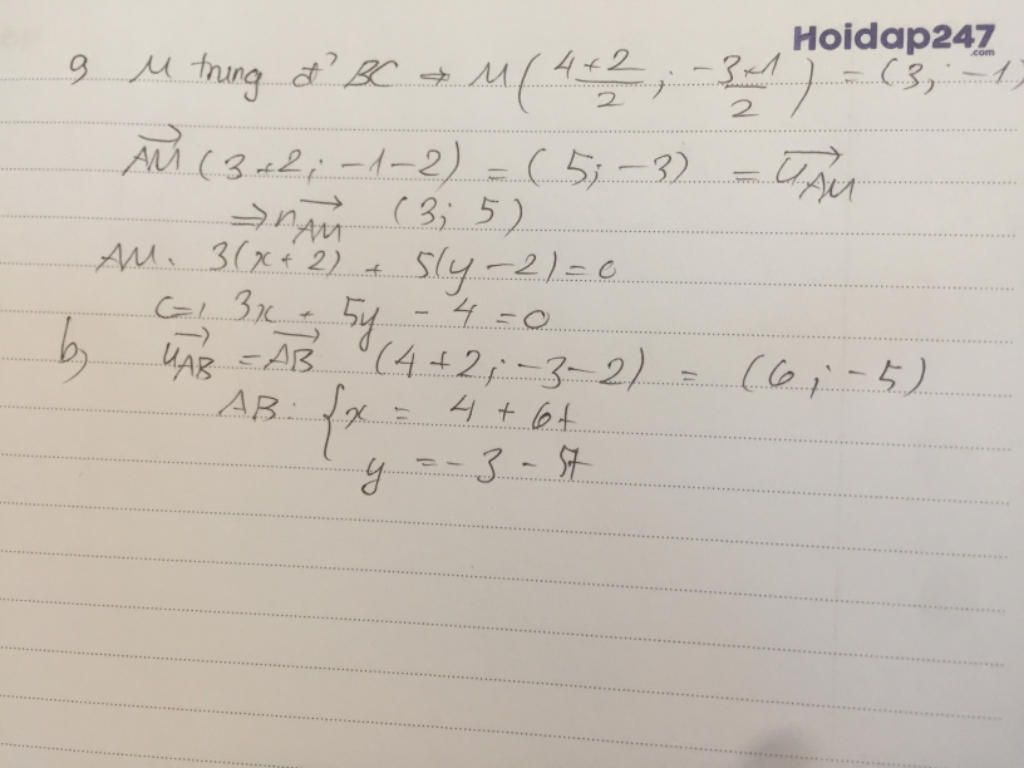 Hoidap247
.com
a M trung đ² BC => M((4+2)/2; (-3+1)/2) = (3; -1)
AM→ (3+2; -1-2) = (5; -3) = u→AM
=> n→AM (3; 5)
AM. 3(x+2) + 5(y-2)=0
<=> 3x + 5y - 4 = 0
b, u→AB = AB→ (4+2; -3-2) = (6; -5)
AB: { x = 4 + 6t
y = -3 - 5t